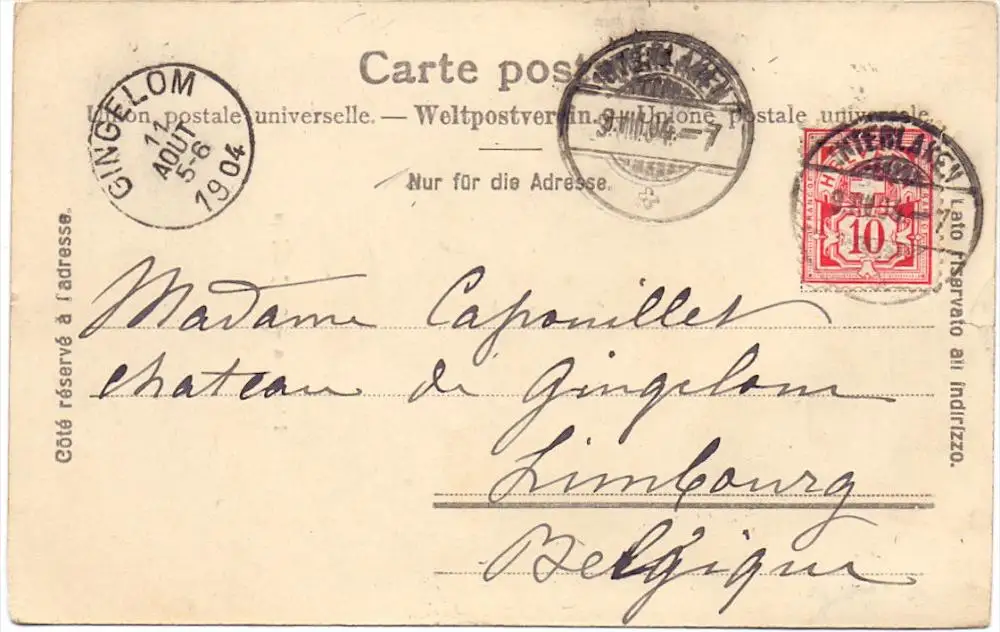 Carte pos
Union postale universelle. — Weltpostverein. — Unione postale universale.
Nur für die Adresse.
GINGELOM
11
AOUT
5-6
1904
INTERLAKEN
9.VIII.04.–7
INTERLAKEN
9.VIII.04.–7
HELVETIA
10
Côté réservé à l'adresse.
Lato riservato all indirizzo.
Madame Capouillet
chateau de Gingelom
Limbourg
Belgique